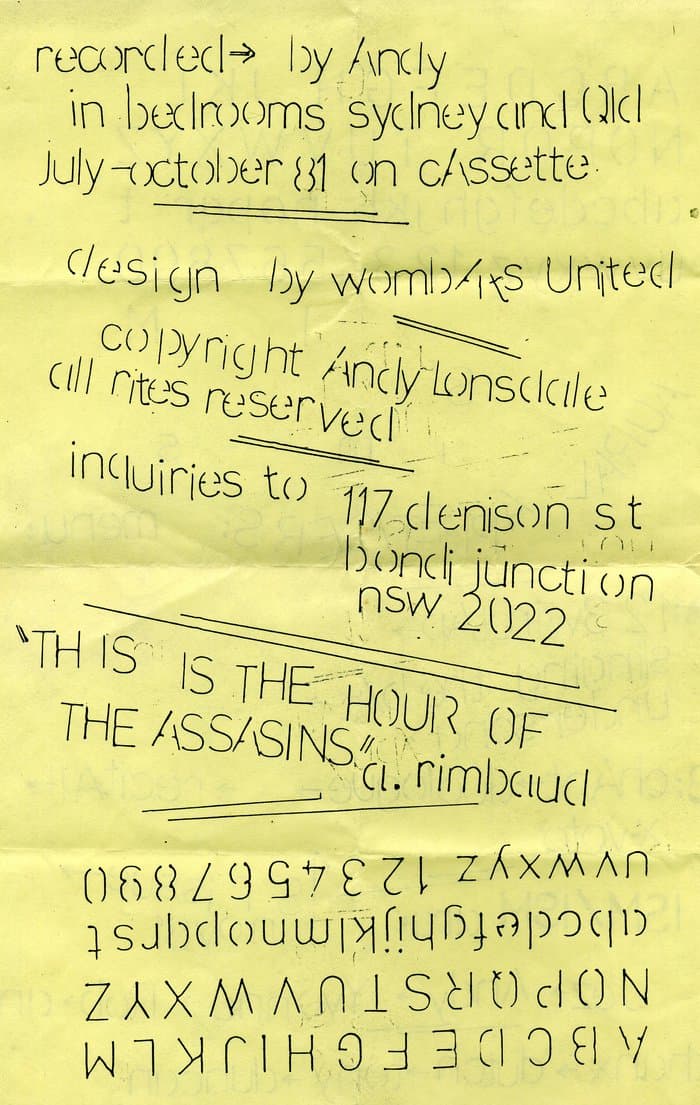 recorded→ by Andy
in bedrooms sydney and Qld
july-october 81 on cAssette.
design by wombAts United
copyright Andy Lonsdale
all rites reserved
inquiries to 117 denison st
bondi junction
nsw 2022
"TH IS IS THE HOUR OF
THE ASSASINS" a. rimbaud
A B C D E F G H I J K L M
N O P Q R S T U V W X Y Z
abcdefghijklmnopqrst
uvwxyz 1234567890